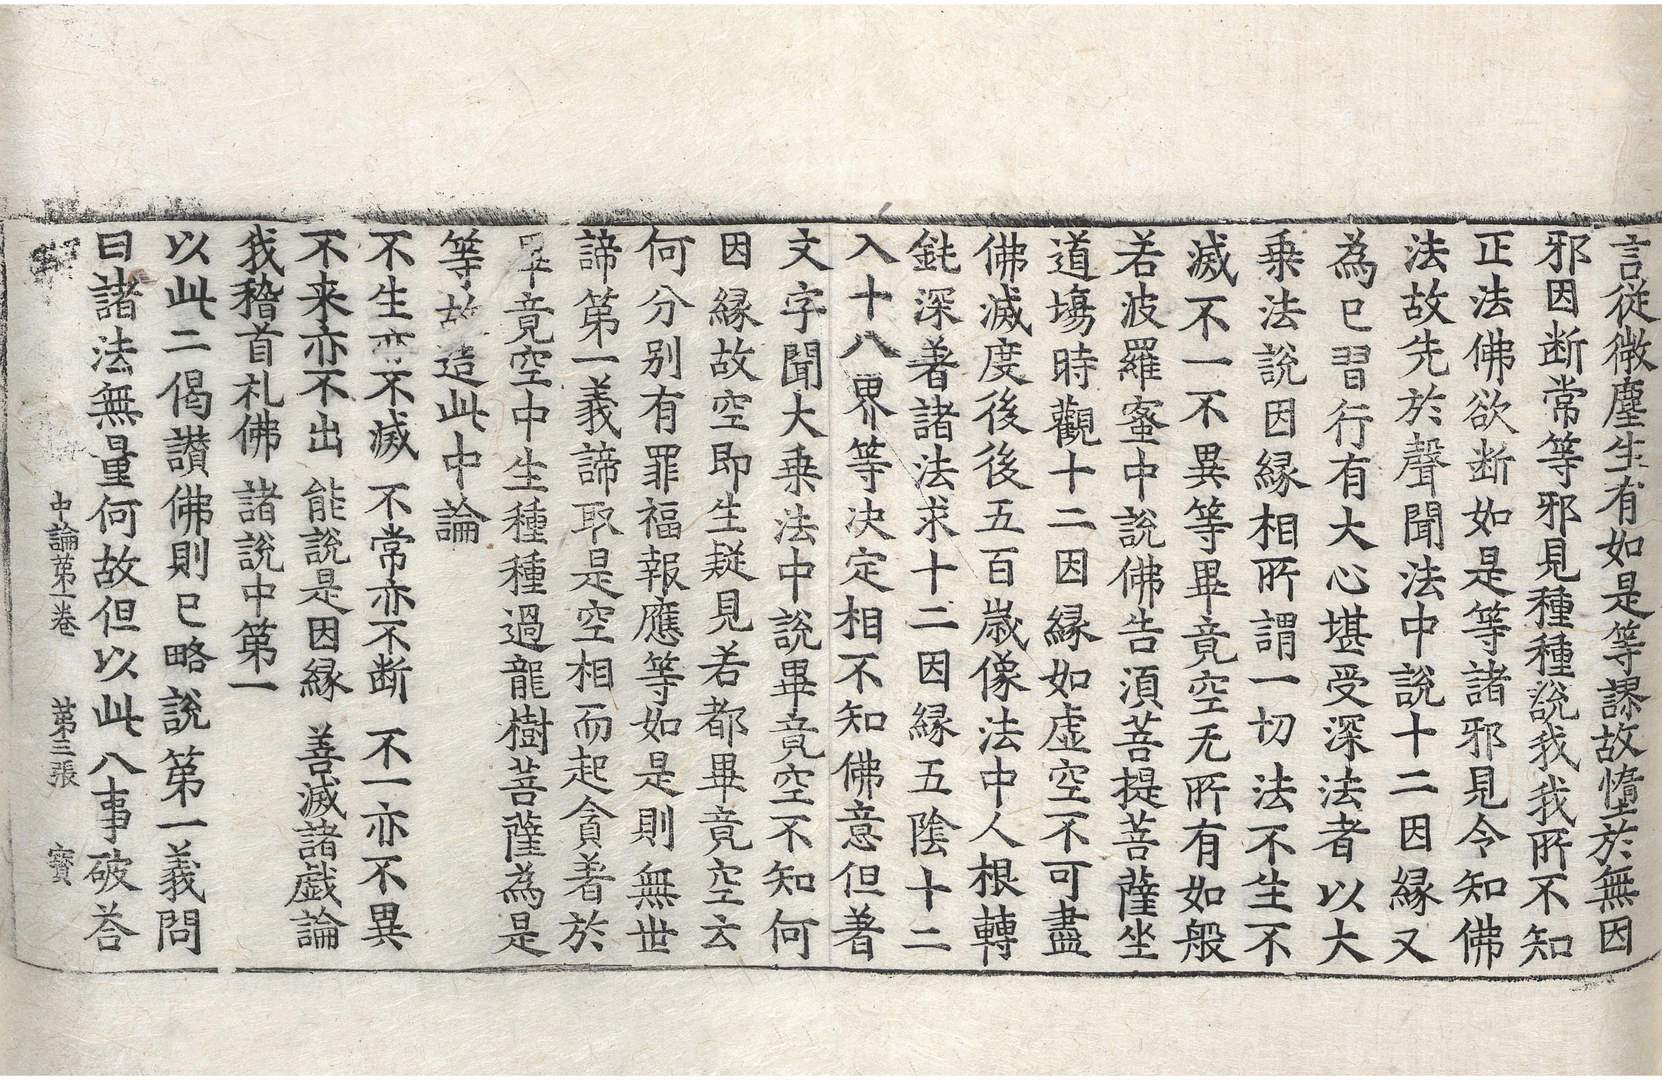 言從微塵生有如是等謬故墮於無因
邪因断常等邪見種種說我我所不知
正法佛欲断如是等諸邪見令知佛
法故先於聲聞法中說十二因縁又
為已習行有大心堪受深法者以大
乗法說因縁相所謂一切法不生不
滅不一不異等畢竟空无所有如般
若波羅蜜中說佛告湏菩提菩薩坐
道塲時觀十二因縁如虚空不可盡
佛滅度後後五百歳像法中人根轉
鈍深著諸法求十二因縁五陰十二
入十八界等决定相不知佛意但著
文字聞大乗法中說畢竟空不知何
因縁故空即生疑見若都畢竟空云
何分别有罪福報應等如是則無世
諦第一義諦取是空相而起貪著於
畢竟空中生種種過龍樹菩薩為是
等故造此中論
不生亦不滅 不常亦不断 不一亦不異
不来亦不出 能說是因縁 善滅諸戯論
我稽首礼佛 諸說中第一
以此二偈讃佛則已略說第一義問
曰諸法無量何故但以此八事破荅
中論第一卷 第三張 寳